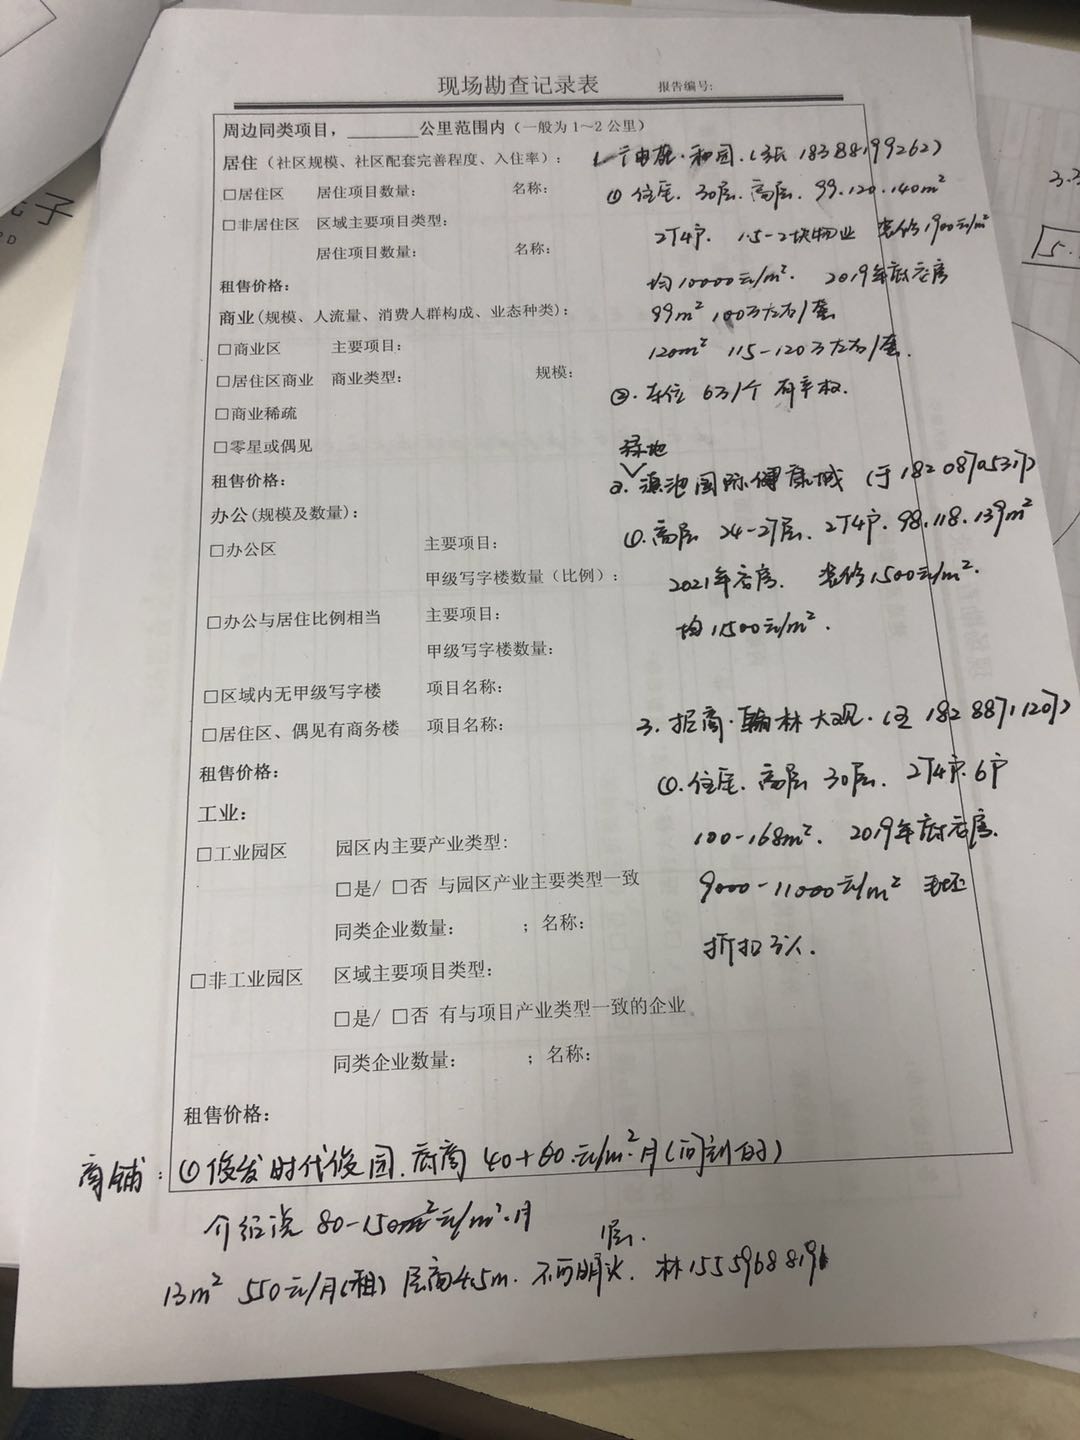 现场勘查记录表 报告编号:
周边同类项目，______公里范围内（一般为1～2公里）
居住（社区规模、社区配套完善程度、入住率）：
和园.(张 18388199262)
□居住区 居住项目数量： 名称：
① 住宅. 30层. 高层. 99.120.140m²
□非居住区 区域主要项目类型：
2T4户. 1.5-2块物业 装修1900元/m²
居住项目数量： 名称：
均10000元/m². 2019年底交房
租售价格：
99m² 100万左右/套
商业(规模、人流量、消费人群构成、业态种类)：
120m² 115-120万左右/套.
□商业区 主要项目：
□居住区商业 商业类型： 规模：
②. 车位 6万/个 有产权.
□商业稀疏
□零星或偶见
绿地
2. 滇池国际健康城 (于 18208705317)
租售价格：
办公(规模及数量)：
①. 高层 24-27层. 2T4户. 98.118.139m²
□办公区 主要项目：
甲级写字楼数量（比例）：
2021年交房. 装修1500元/m².
□办公与居住比例相当 主要项目：
均11500元/m².
甲级写字楼数量：
□区域内无甲级写字楼 项目名称：
3. 招商·翰林大观.(王 18288711207)
□居住区、偶见有商务楼 项目名称：
租售价格：
①. 住宅. 高层 30层. 2T4户. 6户
工业：
100-168m². 2019年底交房.
□工业园区 园区内主要产业类型:
9000-11000元/m² 毛坯
□是/ □否 与园区产业主要类型一致
同类企业数量： ；名称：
折扣
□非工业园区 区域主要项目类型：
□是/ □否 有与项目产业类型一致的企业
同类企业数量： ；名称：
租售价格：
商铺：① 俊发时代俊园. 底商 40+60元/m².月(问到的)
介绍说 80-150元/m².月
1层.
13m² 550元/月(租) 层高4.5m. 不可明火. 林